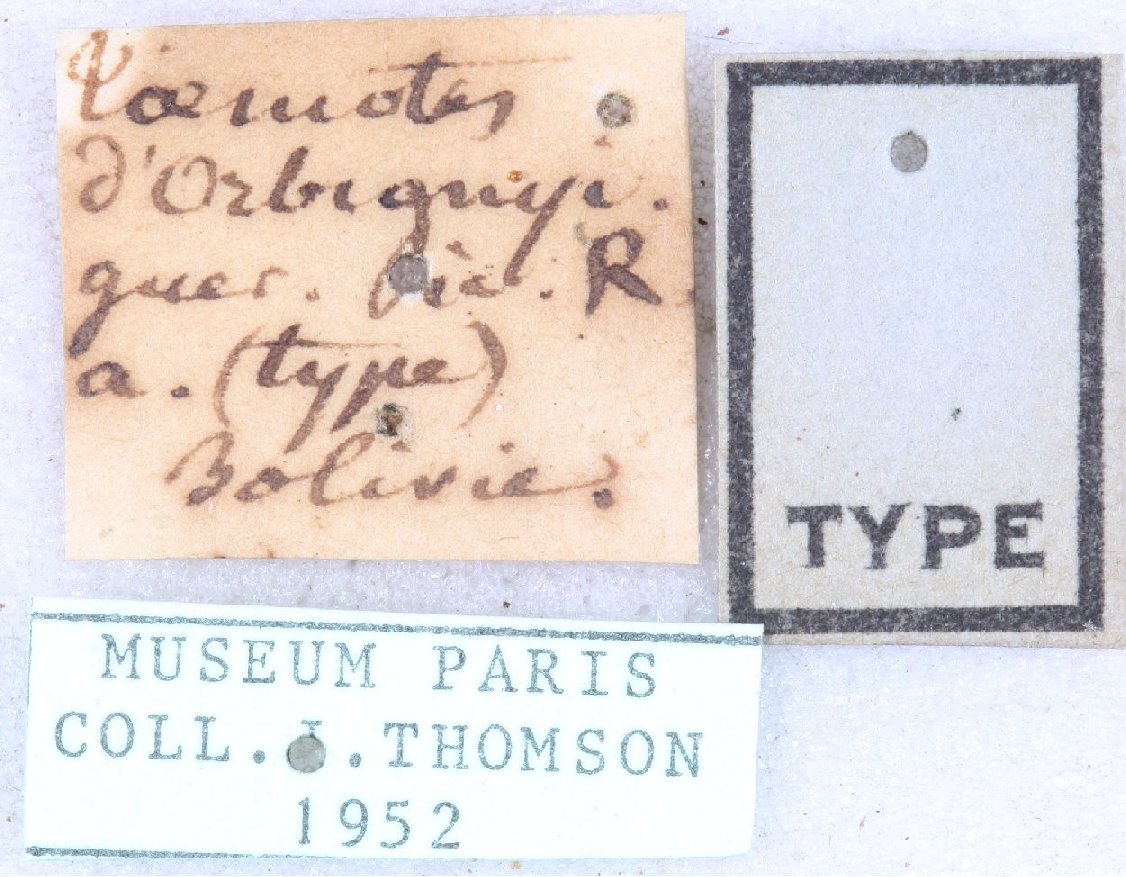 Pœmotes
d'Orbignyi.
guer. Dic. R
a. (type)
Bolivie.
TYPE
MUSEUM PARIS
COLL. J. THOMSON
1952